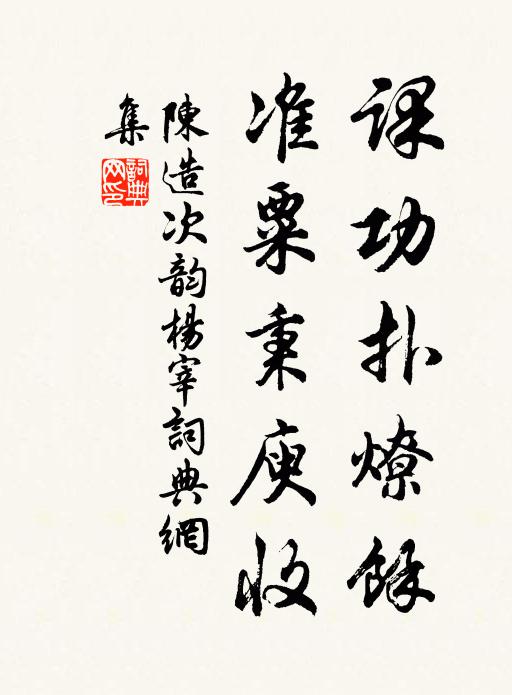 課功扑燎餘
准粟秉庾收
陳造次韵楊宰詞典網
集
詞典網印